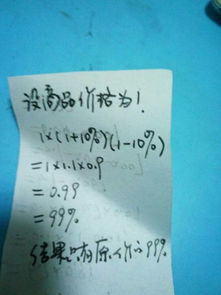 设商品价格为1.
1×(1+10%)(1-10%)
=1×1.1×0.9
=0.99
=99%
结果只有原价的99%